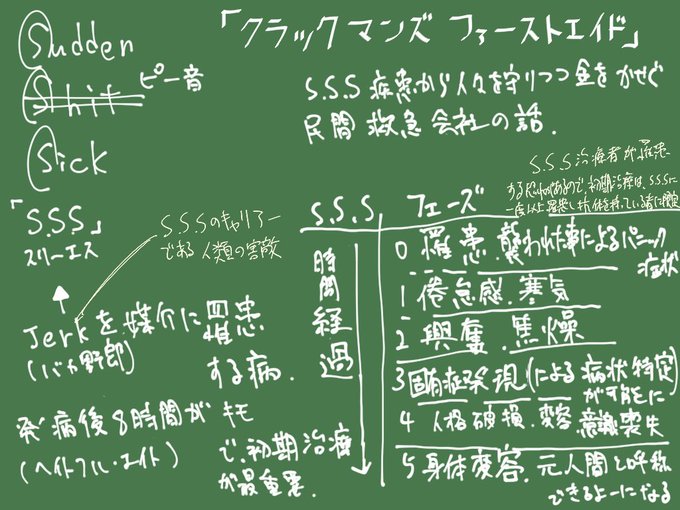 Sudden
Shit ピー音
Sick
「S.S.S」
スリーエス
Jerkを媒介に罹患
(バカ野郎) する病.
発病後8時間がキモ
(ヘイトフル・エイト) で、初期治療
が最重要.
S.S.Sのキャリアー
である人類の害敵
「クラックマンズ ファーストエイド」
S.S.S疾患から人々を守りつつ金をかせぐ
民間救急会社の話.
S.S.S治療者が罹患
する恐れがあるので、初期治療は、S.S.Sに
一度以上罹患し抗体を持っている者に限
S.S.S フェーズ
時間経過
0 罹患.襲われた事によるパニック
症状
1 倦怠感.寒気
2 興奮.焦燥
3 固有症発現(による病状特定)
が可能に
4 人格破損.変容 意識喪失
5 身体変容.元人間と呼称
できるよーになる